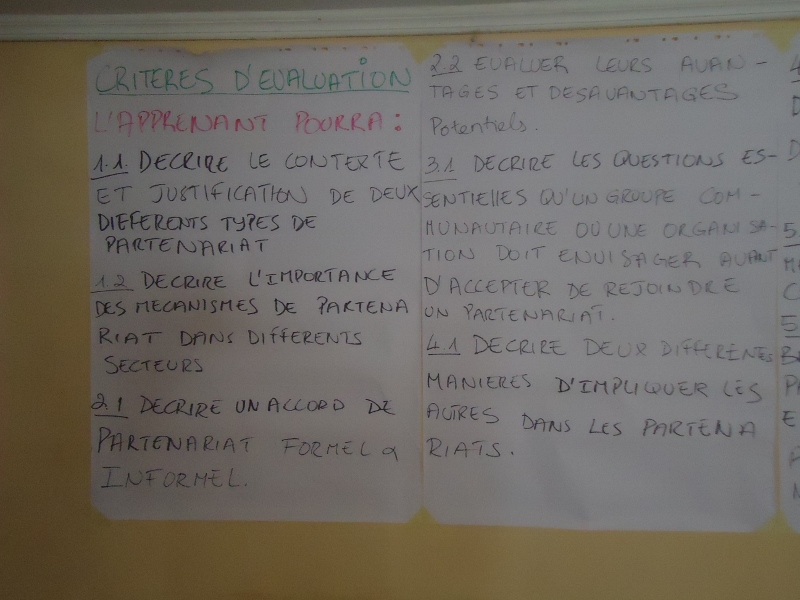 CRITERES D'EVALUATION
L'APPRENANT POURRA :
1.1. DECRIRE LE CONTEXTE
ET JUSTIFICATION DE DEUX
DIFFERENTS TYPES DE
PARTENARIAT
1.2 DECRIRE L'IMPORTANCE
DES MECANISMES DE PARTENA
RIAT DANS DIFFERENTS
SECTEURS
2.1 DECRIRE UN ACCORD DE
PARTENARIAT FORMEL &
INFORMEL.
2.2 EVALUER LEURS AVAN -
TAGES ET DESAVANTAGES
Potentiels.
3.1 DECRIRE LES QUESTIONS ES-
SENTIELLES QU'UN GROUPE COM -
MUNAUTAIRE OU UNE ORGANISA-
TION DOIT ENVISAGER AVANT
D'ACCEPTER DE REJOINDRE
UN PARTENARIAT.
4.1 DECRIRE DEUX DIFFERENTES
MANIERES D'IMPLIQUER LES
AUTRES DANS LES PARTENA
RIATS.